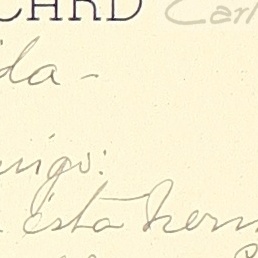 CHARD Carl
ida -
migo:
esta herm